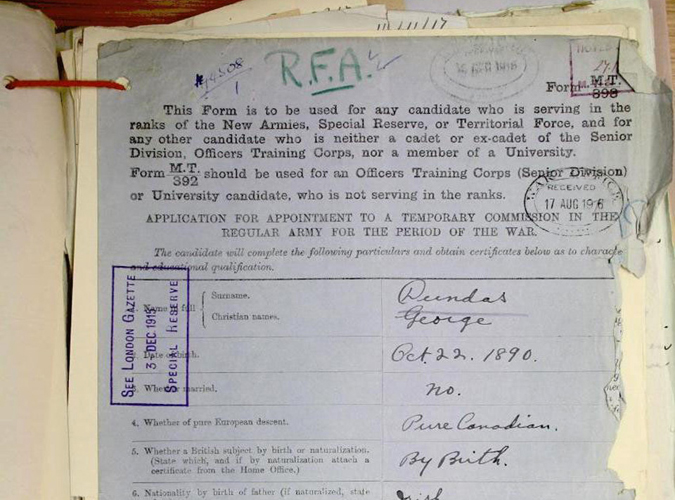 R.F.A.
1
Form M.T.
393
This Form is to be used for any candidate who is serving in the
ranks of the New Armies, Special Reserve, or Territorial Force, and for
any other candidate who is neither a cadet or ex-cadet of the Senior
Division, Officers Training Corps, nor a member of a University.
Form M.T. should be used for an Officers Training Corps (Senior Division)
392
or University candidate, who is not serving in the ranks.
RECEIVED
17 AUG 1916
APPLICATION FOR APPOINTMENT TO A TEMPORARY COMMISSION IN THE
REGULAR ARMY FOR THE PERIOD OF THE WAR.
The candidate will complete the following particulars and obtain certificates below as to character
and educational qualification.
SEE LONDON GAZETTE
3 DEC 1915
SPECIAL RESERVE
Name in full
Surname.
Dundas
Christian names.
George
Date of birth.
Oct 22. 1890.
Whether married.
no.
4. Whether of pure European descent.
Pure Canadian.
5. Whether a British subject by birth or naturalization.
(State which, and if by naturalization attach a
certificate from the Home Office.)
By Birth.
6. Nationality by birth of father (if naturalized, state